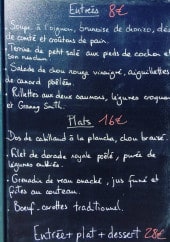 Entrées 8€
. Soupe à l'oignon, brunoise de chorizo, dés
de comté et croûtons de pain.
. Terrine de petit salé aux pieds de cochon et
son
. Salade de chou rouge vinaigré, aiguillettes
de canard poêlées
. Rillettes aux deux saumons, légumes croquants
et Granny Smith.
Plats 16€
. Dos de cabillaud à la plancha, chou braisé.
. Filet de dorade royale poêlé, purée de
légumes
. Grenadin de veau snacké, jus fumé et
frites au couteau.
. Boeuf-carottes traditionnel.
Entrée + plat + dessert 28€